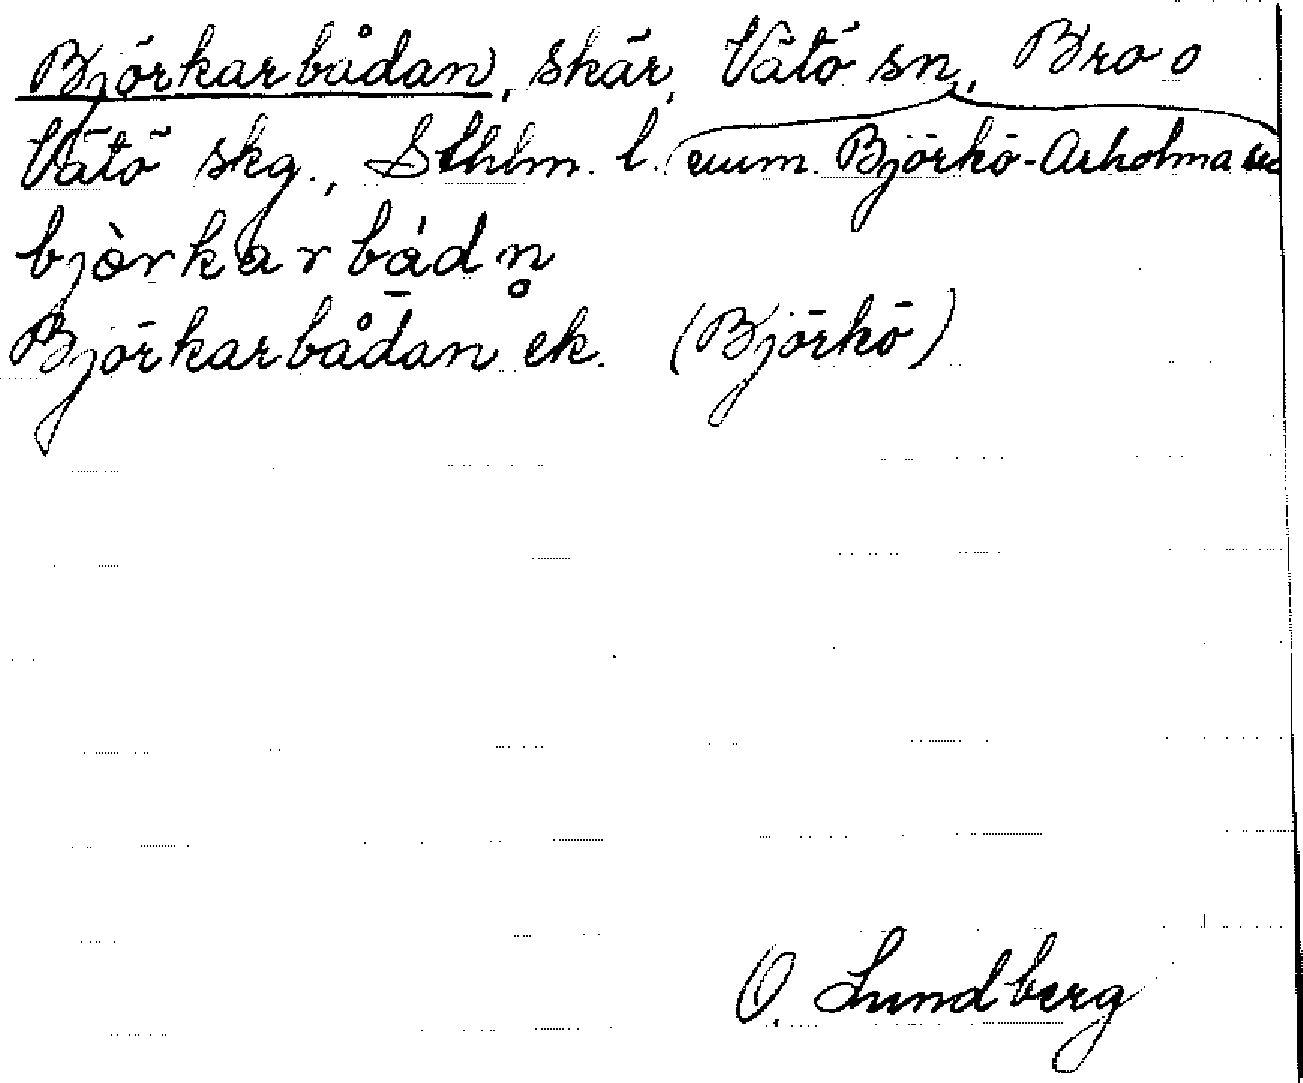 Björkarbådan, skär, Vätö sn, Bro o
Vätö skg., Sthlm. l. (num. Björkö-Arholma sn
bjòrkarbȧ̱dn̥
Björkarbådan ek. (Björkö)
O. Lundberg